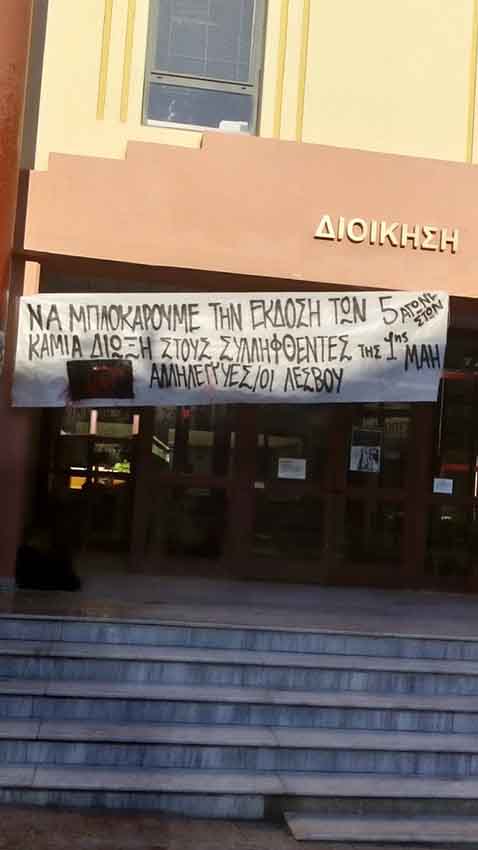 ΔΙΟΙΚΗΣΗ
ΝΑ ΜΠΛΟΚΑΡΟΥΜΕ ΤΗΝ ΕΚΔΟΣΗ ΤΩΝ 5 ΑΓΩΝΙΣΤΩΝ
ΚΑΜΙΑ ΔΙΩΞΗ ΣΤΟΥΣ ΣΥΛΛΗΦΘΕΝΤΕΣ ΤΗΣ 1ης ΜΑΗ
ΑΛΛΗΛΕΓΓΥΕΣ/ΟΙ ΛΕΣΒΟΥ